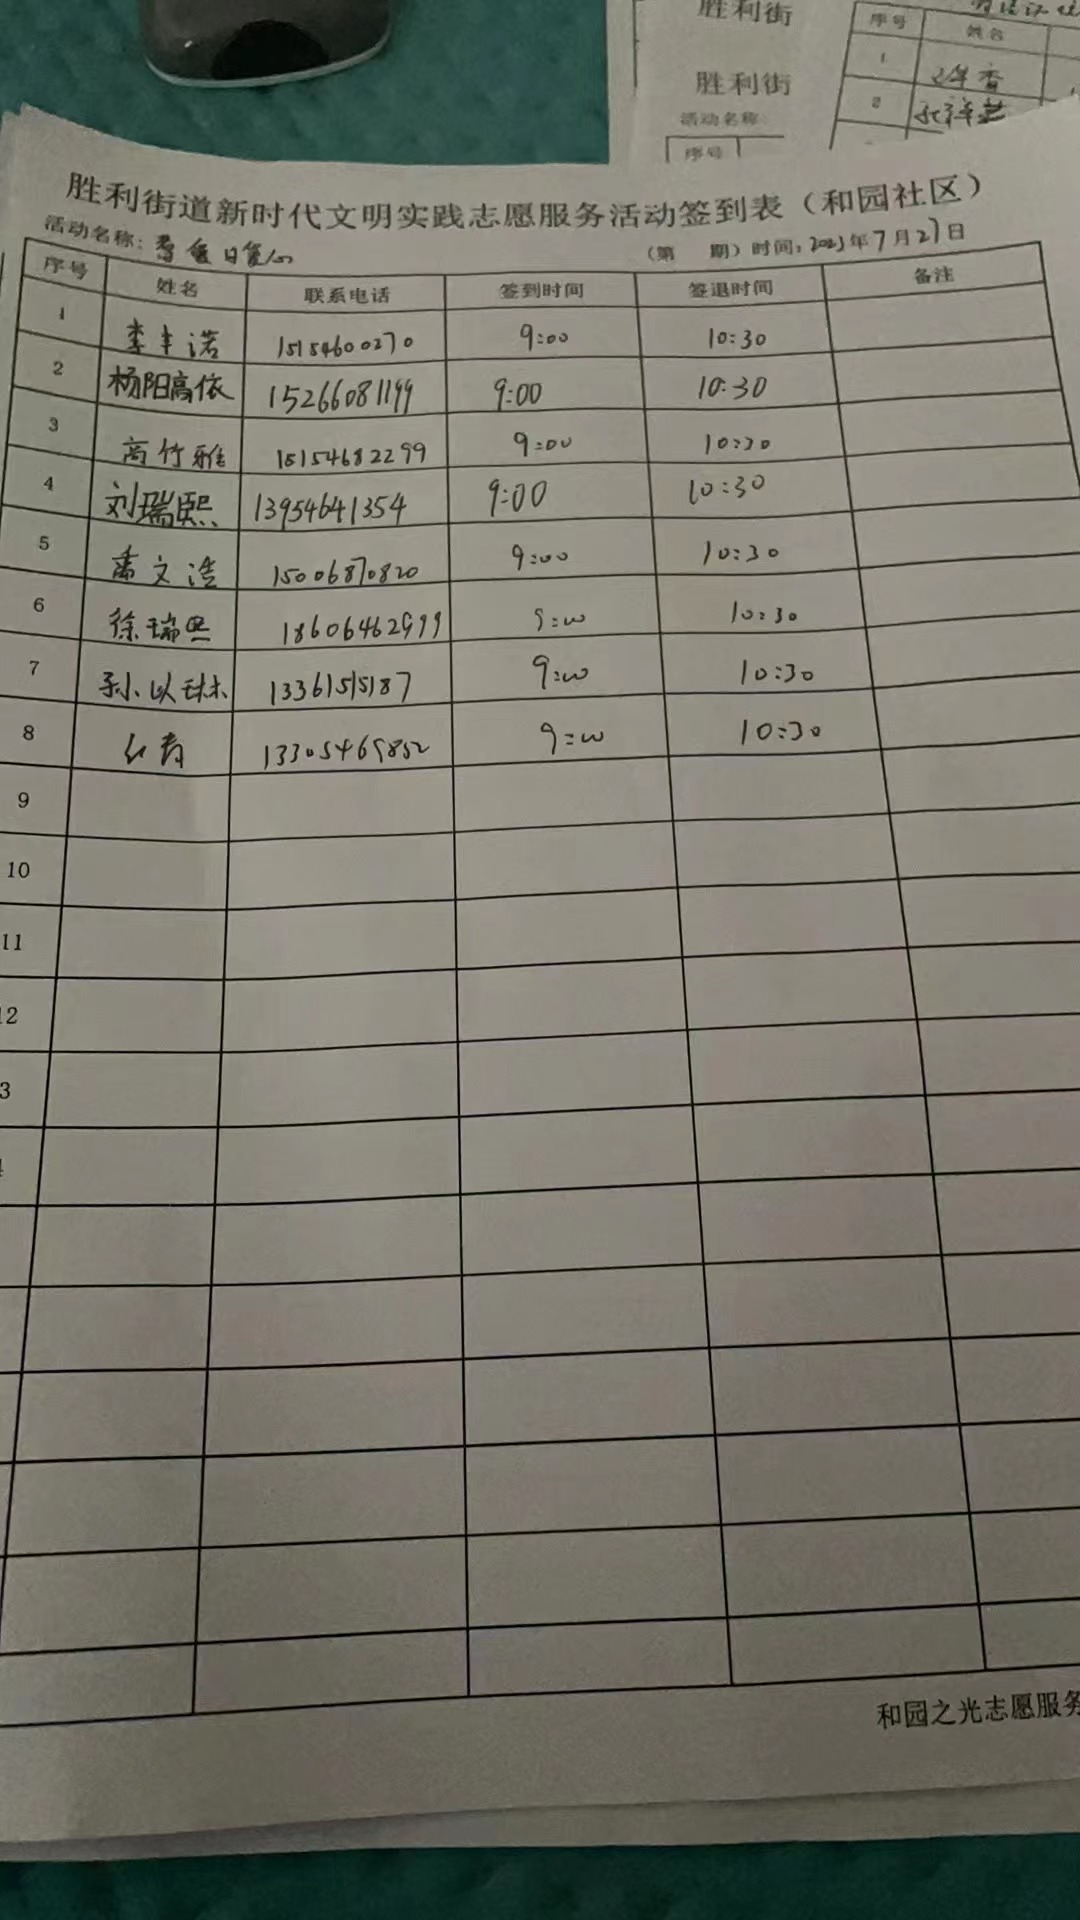 胜利街
胜利街
活动名称
序号
序号 姓名
1
2
胜利街道新时代文明实践志愿服务活动签到表（和园社区）
活动名称： （第 期）时间：2023年7月27日
序号 姓名 联系电话 签到时间 签退时间 备注
1 李丰诺 15154600270 9:00 10:30
2 杨阳高依 15266081199 9:00 10:30
3 高竹雅 15154682299 9:00 10:30
4 刘瑞熙 13954641354 9:00 10:30
5 文浩 15006870820 9:00 10:30
6 徐瑞思 18606462999 9:00 10:30
7 孙以琳 13361515187 9:00 10:30
8 13305469852 9:00 10:30
9
10
11
12
3
和园之光志愿服务